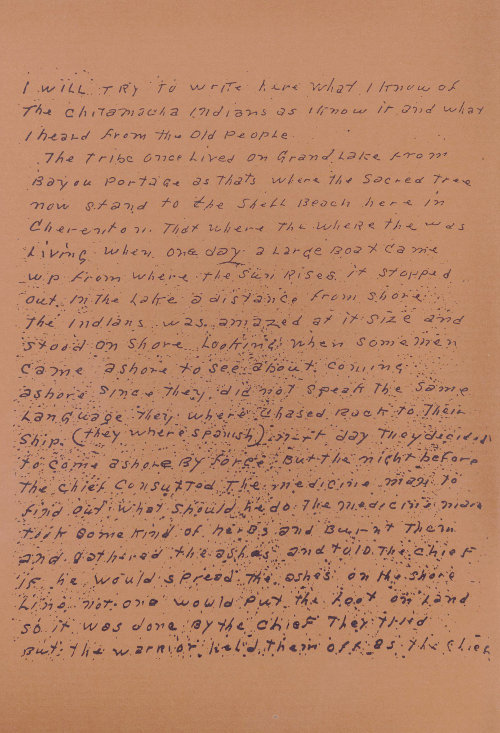 I will try to write here what I know of
The Chitamacha Indians as I know it and what
I heard from the old people.
The tribe once lived on Grand Lake from
Bayou Portage as thats where the Sacred Tree
now stand to the Shell Beach here in
Cherenton. That where the where the was
Living when one day a large Boat came
up from where the sun Rises it stopped
out in the Lake a distance from shore
The Indians was amazed at it size and
stood on shore looking when some men
came ashore to see about coming
ashore since they did not speak the same
Language they where chased Back to their
ship. (they where spanish) next day they decided
to come ashore By force. But the night before
The chief consulted The medicine man to
find out what should he do. The medicine man
took some kind of herbs and Burnt them
and gathered the ashes and told the chief
if he would spread the ashes on the shore
Line not one would put the foot on Land
so it was done By the chief They tried
But the warrior held them off as the chief